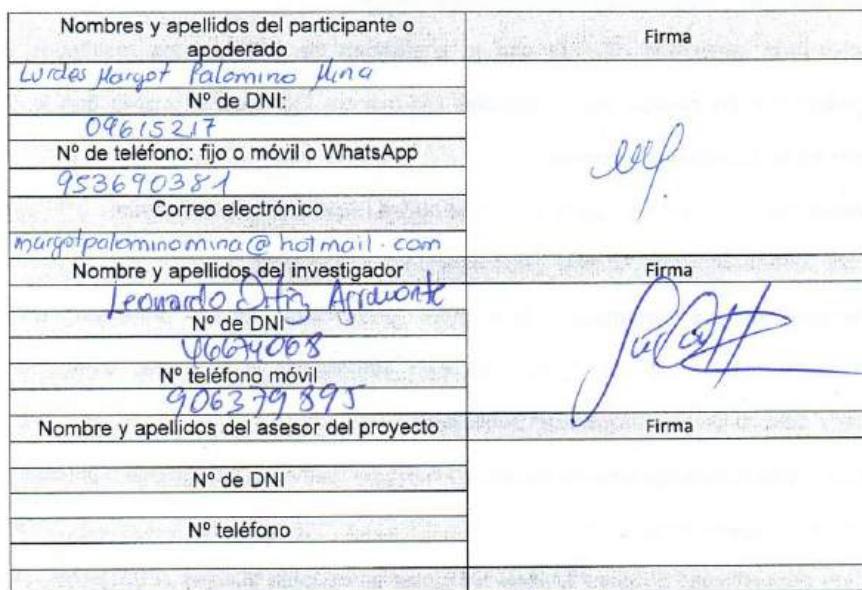 Nombres y apellidos del participante o
apoderado
Firma
Lurdes Margot Palomino Mina
Nº de DNI:
09615217
Nº de teléfono: fijo o móvil o WhatsApp
953690381
Correo electrónico
margotpalominomina@hotmail.com
Nombre y apellidos del investigador
Firma
Leonardo Ortiz
Nº de DNI
46674068
Nº teléfono móvil
906379895
Nombre y apellidos del asesor del proyecto
Firma
Nº de DNI
Nº teléfono